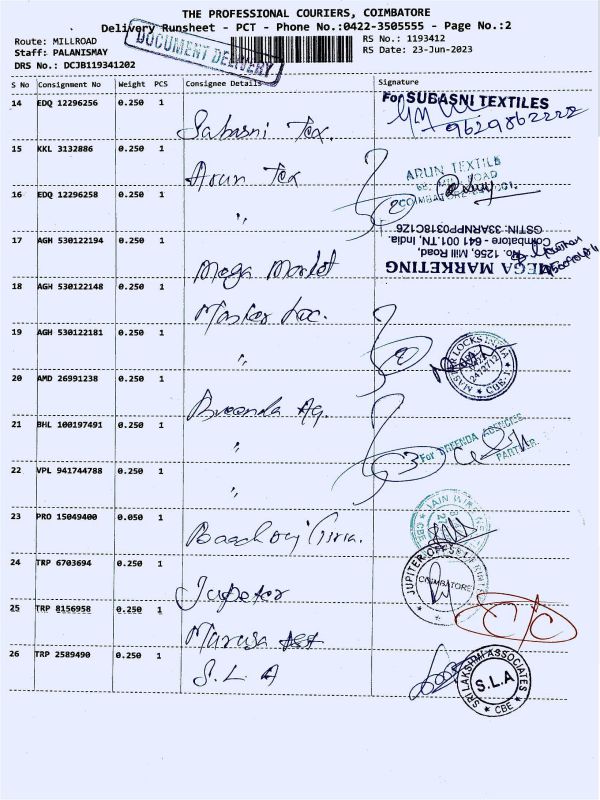 THE PROFESSIONAL COURIERS, COIMBATORE
Delivery Runsheet - PCT - Phone No.:0422-3505555 - Page No.:2
Route: MILLROAD
Staff: PALANISMAY
DRS No.: DCJB119341202
DOCUMENT DELIVERY
RS No.: 1193412
RS Date: 23-Jun-2023
S No Consignment No Weight PCS Consignee Details Signature
14 EDQ 12296256 0.250 1
Sabasni Tex.
For SUBASNI TEXTILES
9629862222
15 KKL 3132886 0.250 1
Arun Tex
ARUN TEXTILE
16 EDQ 12296258 0.250 1
"
17 AGH 530122194 0.250 1
Mega Market
MEGA MARKETING
No. 1256, Mill Road,
Coimbatore - 641 001.TN, India.
GSTIN: 33ARNPP0318C1Z6
18 AGH 530122148 0.250 1
Master Loc.
19 AGH 530122181 0.250 1
"
20 AMD 26991238 0.250 1
Breenda Ag.
21 BHL 100197491 0.250 1
"
22 VPL 941744788 0.250 1
"
23 PRO 15049400 0.050 1
24 TRP 6703694 0.250 1
Jupeter
COIMBATORE
25 TRP 8156958 0.250 1
26 TRP 2589490 0.250 1
S.L A
SRI LAKSHMI ASSOCIATES
S.L.A
CBE